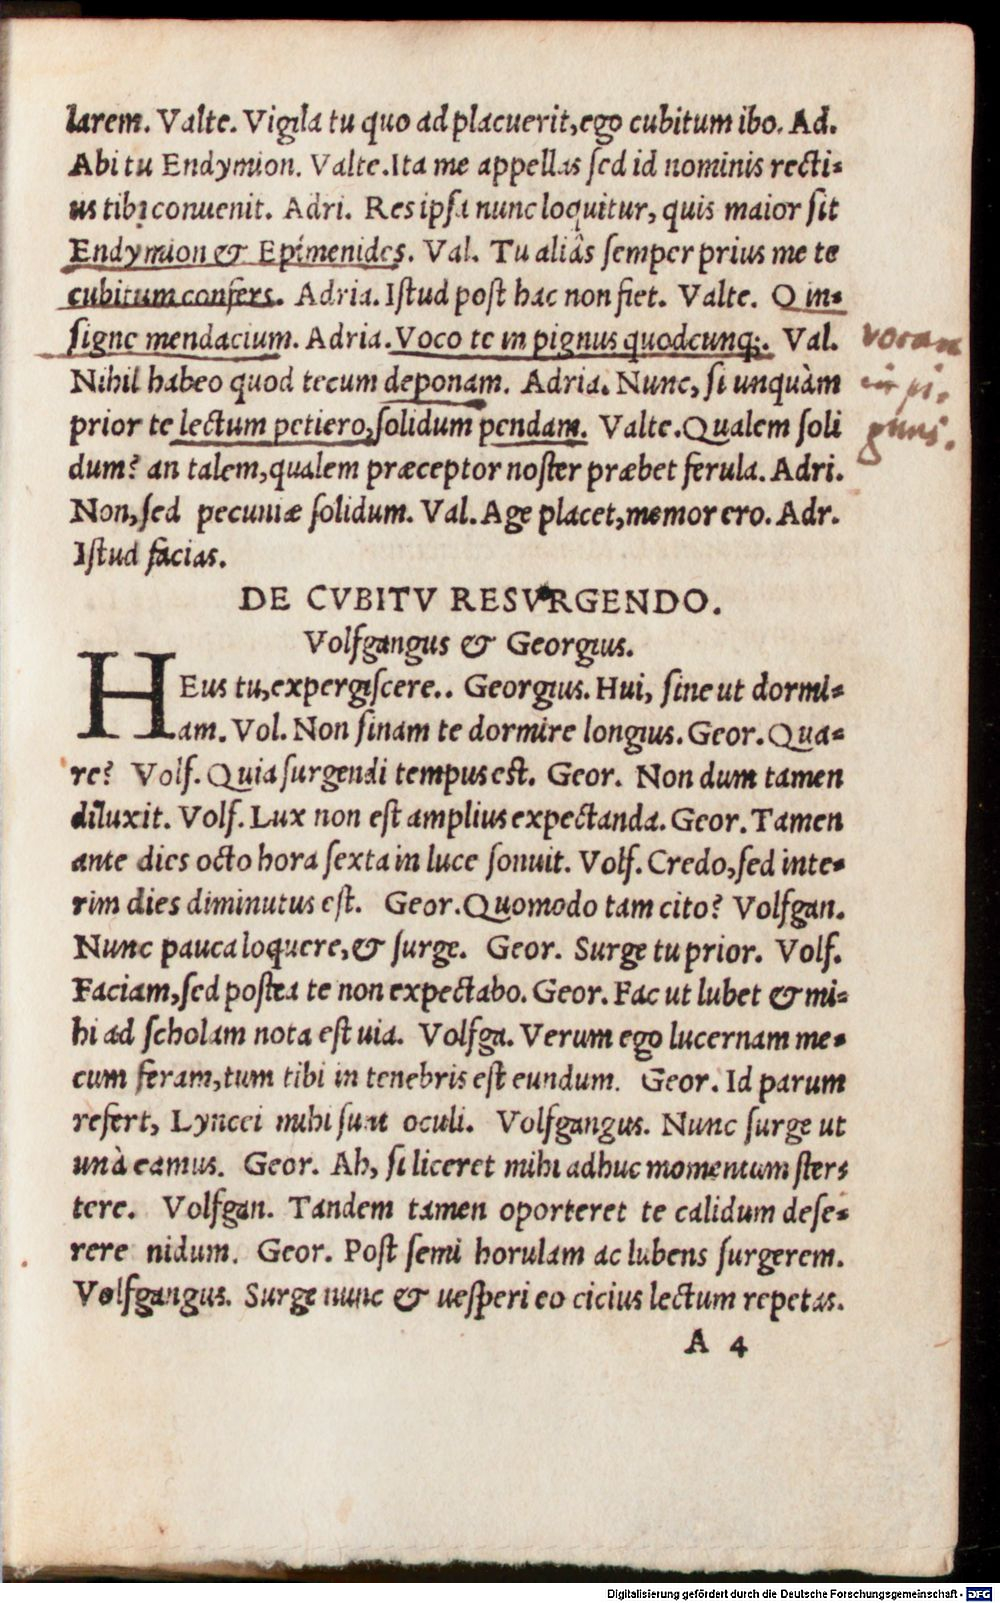 larem. Valte. Vigila tu quo ad placuerit, ego cubitum ibo. Ad.
Abi tu Endymion. Valte. Ita me appellas sed id nominis recti-
us tibi conuenit. Adri. Res ipsa nunc loquitur, quis maior sit
Endymion & Epimenides. Val. Tu aliâs semper prius me te
cubitum confers. Adria. Istud post hac non fiet. Valte. O in-
signe mendacium. Adria. Voco te in pignus quodcunq;. Val.
Nihil habeo quod tecum deponam. Adria. Nunc, si unquàm
prior te lectum petiero, solidum pendam. Valte. Qualem soli
dum? an talem, qualem præceptor noster præbet ferula. Adri.
Non, sed pecuniæ solidum. Val. Age placet, memor ero. Adr.
Istud facias.
vocare
in pi-
gnus.
DE CVBITV RESVRGENDO.
Volfgangus & Georgius.
HEus tu, expergiscere.. Georgius. Hui, sine ut dormi-
am. Vol. Non sinam te dormire longius. Geor. Qua-
re? Volf. Quia surgendi tempus est. Geor. Non dum tamen
diluxit. Volf. Lux non est amplius expectanda. Geor. Tamen
ante dies octo hora sexta in luce sonuit. Volf. Credo, sed inte-
rim dies diminutus est. Geor. Quomodo tam cito? Volfgan.
Nunc pauca loquere, & surge. Geor. Surge tu prior. Volf.
Faciam, sed postea te non expectabo. Geor. Fac ut lubet & mi-
hi ad scholam nota est uia. Volfga. Verum ego lucernam me-
cum feram, tum tibi in tenebris est eundum. Geor. Id parum
refert, Lyncei mihi sunt oculi. Volfgangus. Nunc surge ut
unà eamus. Geor. Ah, si liceret mihi adhuc momentum ster-
tere. Volfgan. Tandem tamen oporteret te calidum dese-
rere nidum. Geor. Post semi horulam ac lubens surgerem.
Volfgangus. Surge nunc & uesperi eo cicius lectum repetas.
A 4
Digitalisierung gefördert durch die Deutsche Forschungsgemeinschaft - DFG